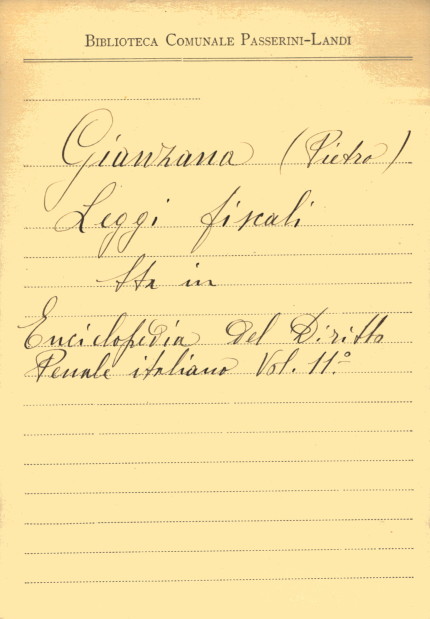 Biblioteca Comunale Passerini-Landi
Gianzana (Pietro)
Leggi fiscali
Sta in
Enciclopedia del Diritto
Penale italiano Vol. 11.º